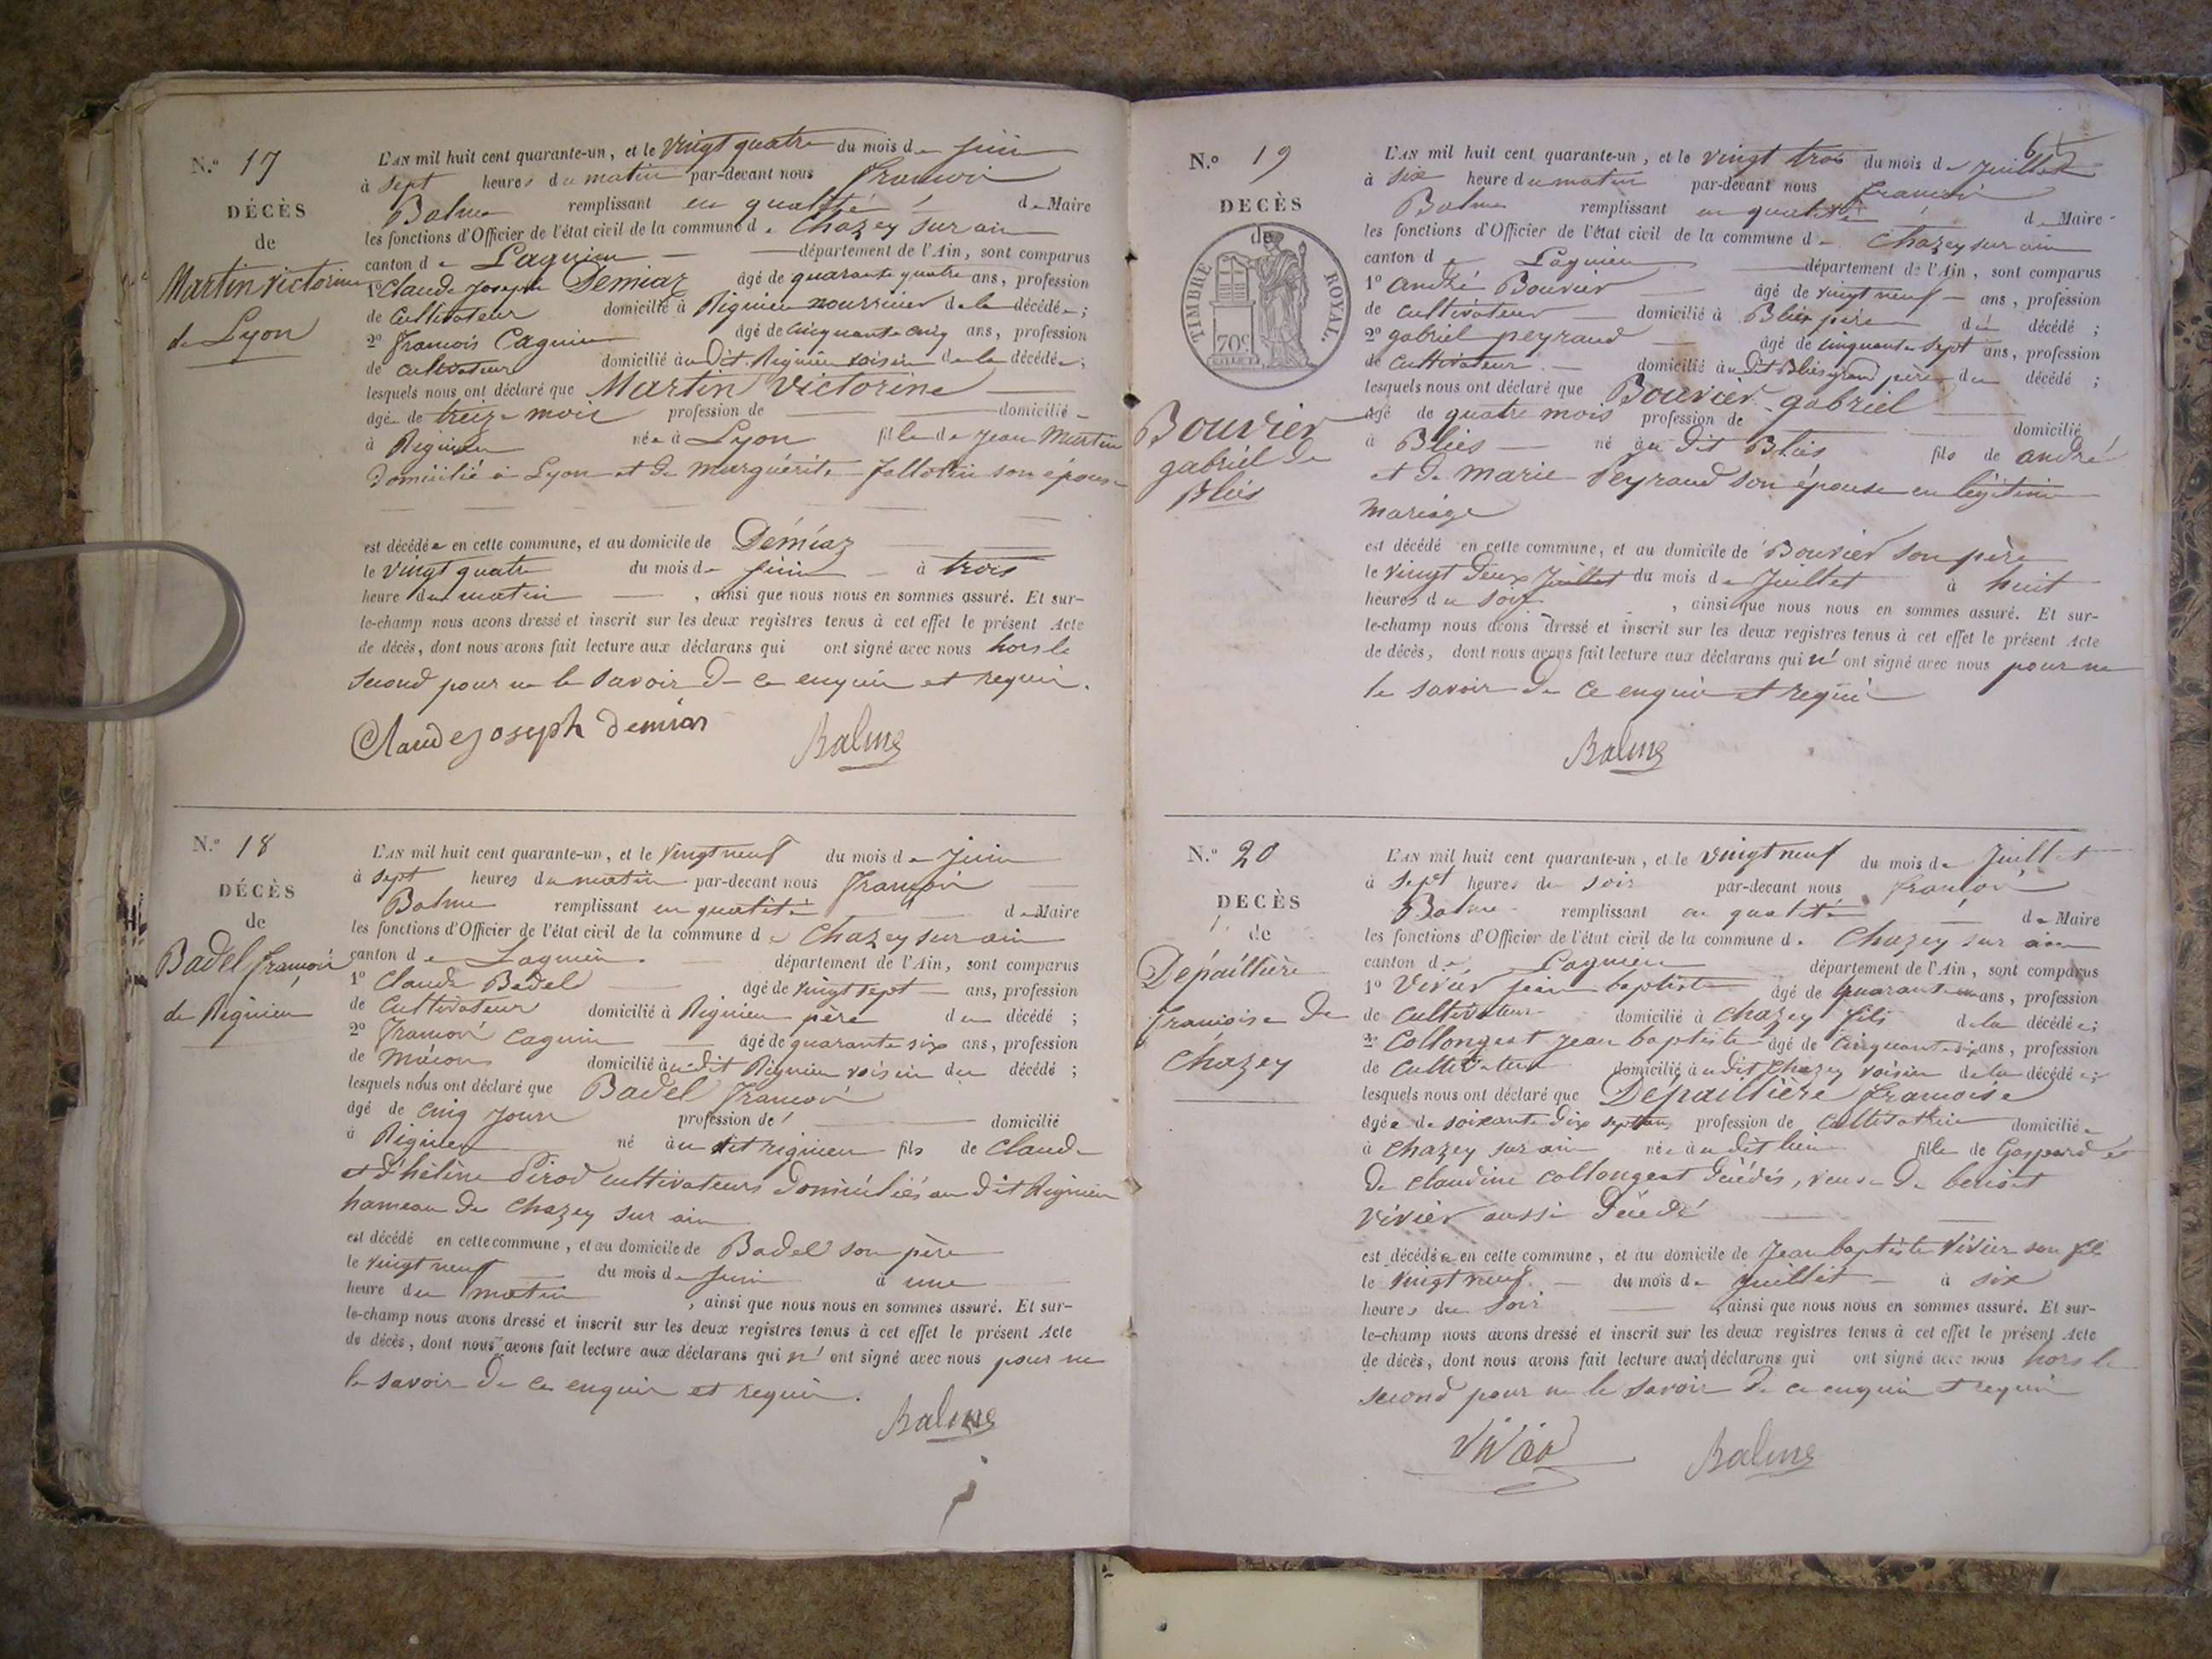 N.º 17
DÉCÈS
de
Martin Victorine
de Lyon
L'AN mil huit cent quarante-un, et le vingt quatre du mois de juin
à sept heures du matin par-devant nous François
Balme remplissant en qualité de Maire
les fonctions d'Officier de l'état civil de la commune de Chazey sur ain
canton de Lagnieu département de l'Ain, sont comparus
1º Claude Joseph Demiaz âgé de quarante quatre ans, profession
de Cultivateur domicilié à Rignieu nourricier de la décédée;
2º François Cagnin âgé de cinquante cinq ans, profession
de cultivateur domicilié au dit Rignieu voisin de la décédée;
lesquels nous ont déclaré que Martin Victorine
âgée de treize mois profession de domicilié
à Rignieu née à Lyon fille de Jean Martin
domicilié à Lyon et de Marguérite son épouse
est décédée en cette commune, et au domicile de Démiaz
le vingt quatre du mois de juin à trois
heure du matin, ainsi que nous nous en sommes assuré. Et sur-
le-champ nous avons dressé et inscrit sur les deux registres tenus à cet effet le présent Acte
de décès, dont nous avons fait lecture aux déclarans qui ont signé avec nous hors le
second pour ne le savoir de ce enquis et requis.
Claude joseph demias Balme
N.º 18
DÉCÈS
de
Badel françois
de Rignieu
L'AN mil huit cent quarante-un, et le vingt neuf du mois de Juin
à sept heures du matin par-devant nous François
Balme remplissant en qualité de Maire
les fonctions d'Officier de l'état civil de la commune de Chazey sur ain
canton de Lagnieu département de l'Ain, sont comparus
1º Claude Badel âgé de vingt sept ans, profession
de Cultivateur domicilié à Rignieu père du décédé;
2º François Cagnin âgé de quarante six ans, profession
de maçon domicilié au dit Rignieu voisin du décédé;
lesquels nous ont déclaré que Badel François
âgé de cinq jours profession de domicilié
à Rignieu né au dit rignieu fils de Claude
et d'hélène Pirod cultivateurs domiciliés au dit Rignieu
hameau de Chazey sur ain
est décédé en cette commune, et au domicile de Badel son père
le vingt neuf du mois de juin à une
heure du matin, ainsi que nous nous en sommes assuré. Et sur-
le-champ nous avons dressé et inscrit sur les deux registres tenus à cet effet le présent Acte
de décès, dont nous avons fait lecture aux déclarans qui n' ont signé avec nous pour ne
le savoir de ce enquis et requis.
Balme
6
N.º 19
DECÈS
de
TIMBRE ROYAL.
70c
Bouvier
gabriel de
Bliès
L'AN mil huit cent quarante-un, et le vingt trois du mois de Juillet
à six heure du matin par-devant nous françois
Balme remplissant en qualité de Maire
les fonctions d'Officier de l'état civil de la commune de Chazey sur ain
canton de Lagnieu département de l'Ain, sont comparus
1º André Bouvier âgé de vingt neuf ans, profession
de cultivateur domicilié à Bliès père du décédé;
2º gabriel peyraud âgé de cinquante sept ans, profession
de cultivateur domicilié au dit Bliès grand père du décédé;
lesquels nous ont déclaré que Bouvier gabriel
âgé de quatre mois profession de domicilié
à Bliès né au dit Bliès fils de andré
et de marie Peyraud son épouse en légitime
mariage
est décédé en cette commune, et au domicile de Bouvier son père
le vingt deux Juillet du mois de Juillet à huit
heures du soir, ainsi que nous nous en sommes assuré. Et sur-
le-champ nous avons dressé et inscrit sur les deux registres tenus à cet effet le présent Acte
de décès, dont nous avons fait lecture aux déclarans qui n' ont signé avec nous pour ne
le savoir de ce enquis et requis
Balme
N.º 20
DECÈS
de
Dépaillière
françoise de
Chazey
L'AN mil huit cent quarante-un, et le vingt neuf du mois de Juillet
à sept heures du soir par-devant nous françois
Balme remplissant en qualité de Maire
les fonctions d'Officier de l'état civil de la commune de Chazey sur ain
canton de Lagnieu département de l'Ain, sont comparus
1º Vivier jean baptiste âgé de quarante ans, profession
de cultivateur domicilié à Chazey fils de la décédée;
2º Collongeat Jean baptiste âgé de cinquante six ans, profession
de Cultivateur domicilié au dit Chazey voisin de la décédée;
lesquels nous ont déclaré que Dépaillière françoise
âgée de soixante dix sept ans profession de Cultivatrice domiciliée
à Chazey sur ain née au dit lieu fille de Gaspard et
de Claudine Collongeat décédés, veuve de benoit
vivier aussi décédé
est décédée en cette commune, et au domicile de Jean baptiste Vivier son fils
le vingt neuf du mois de Juillet à six
heures du soir, ainsi que nous nous en sommes assuré. Et sur-
le-champ nous avons dressé et inscrit sur les deux registres tenus à cet effet le présent Acte
de décès, dont nous avons fait lecture aux déclarans qui ont signé avec nous hors le
second pour ne le savoir de ce enquis et requis
Vivier Balme